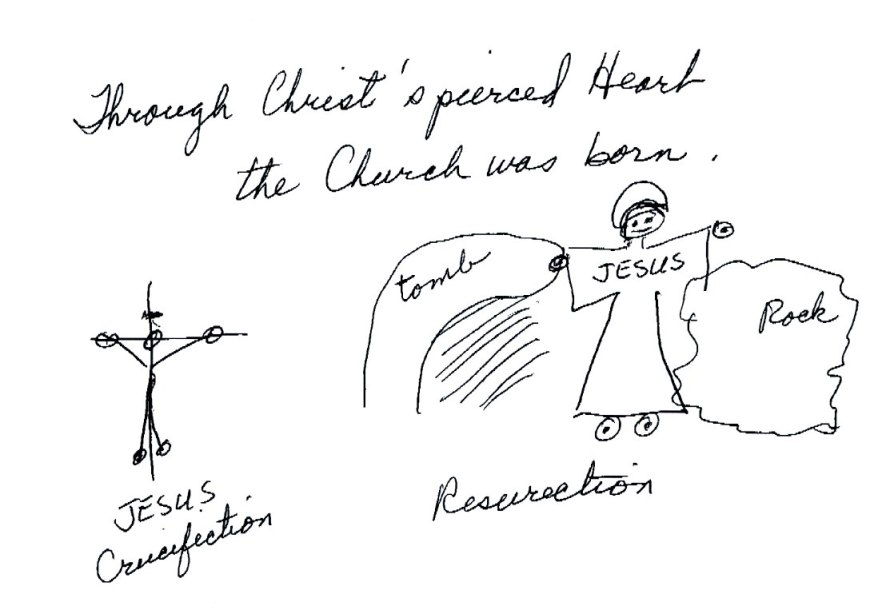 Through Christ's pierced Heart
the Church was born.
tomb
JESUS
Rock
JESUS
Crucifection
Resurection